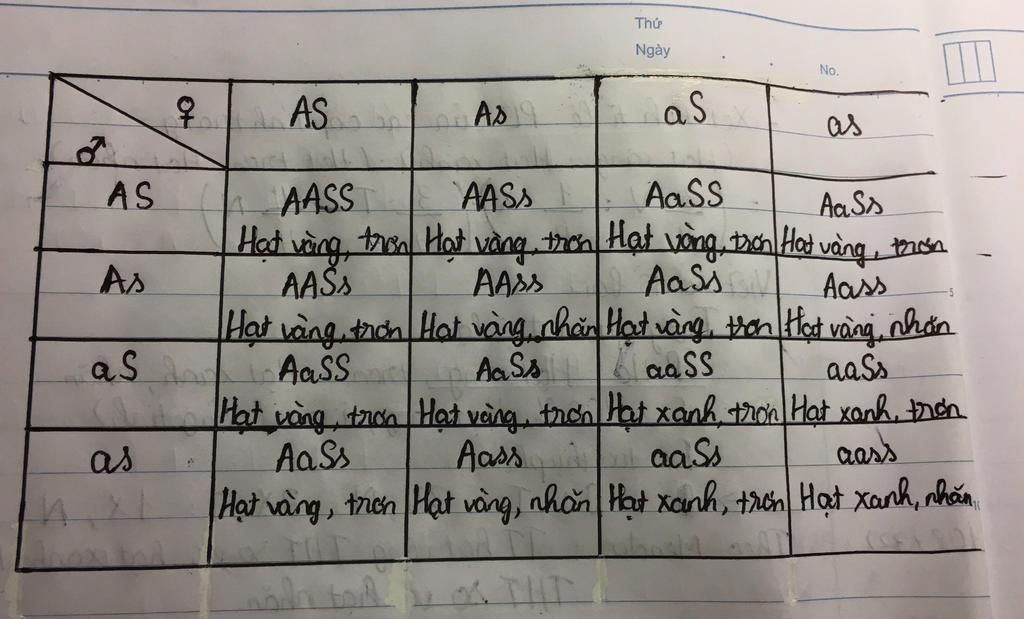 Thứ
Ngày
No.
♀ AS As aS as
♂
AS AASS AASs AaSS AaSs
Hạt vàng, trơn Hạt vàng, trơn Hạt vàng, trơn Hạt vàng, trơn
As AASs AAss AaSs Aass
Hạt vàng, trơn Hạt vàng, nhăn Hạt vàng, trơn Hạt vàng, nhăn
aS AaSS AaSs aaSS aaSs
Hạt vàng, trơn Hạt vàng, trơn Hạt xanh, trơn Hạt xanh, trơn
as AaSs Aass aaSs aass
Hạt vàng, trơn Hạt vàng, nhăn Hạt xanh, trơn Hạt xanh, nhăn